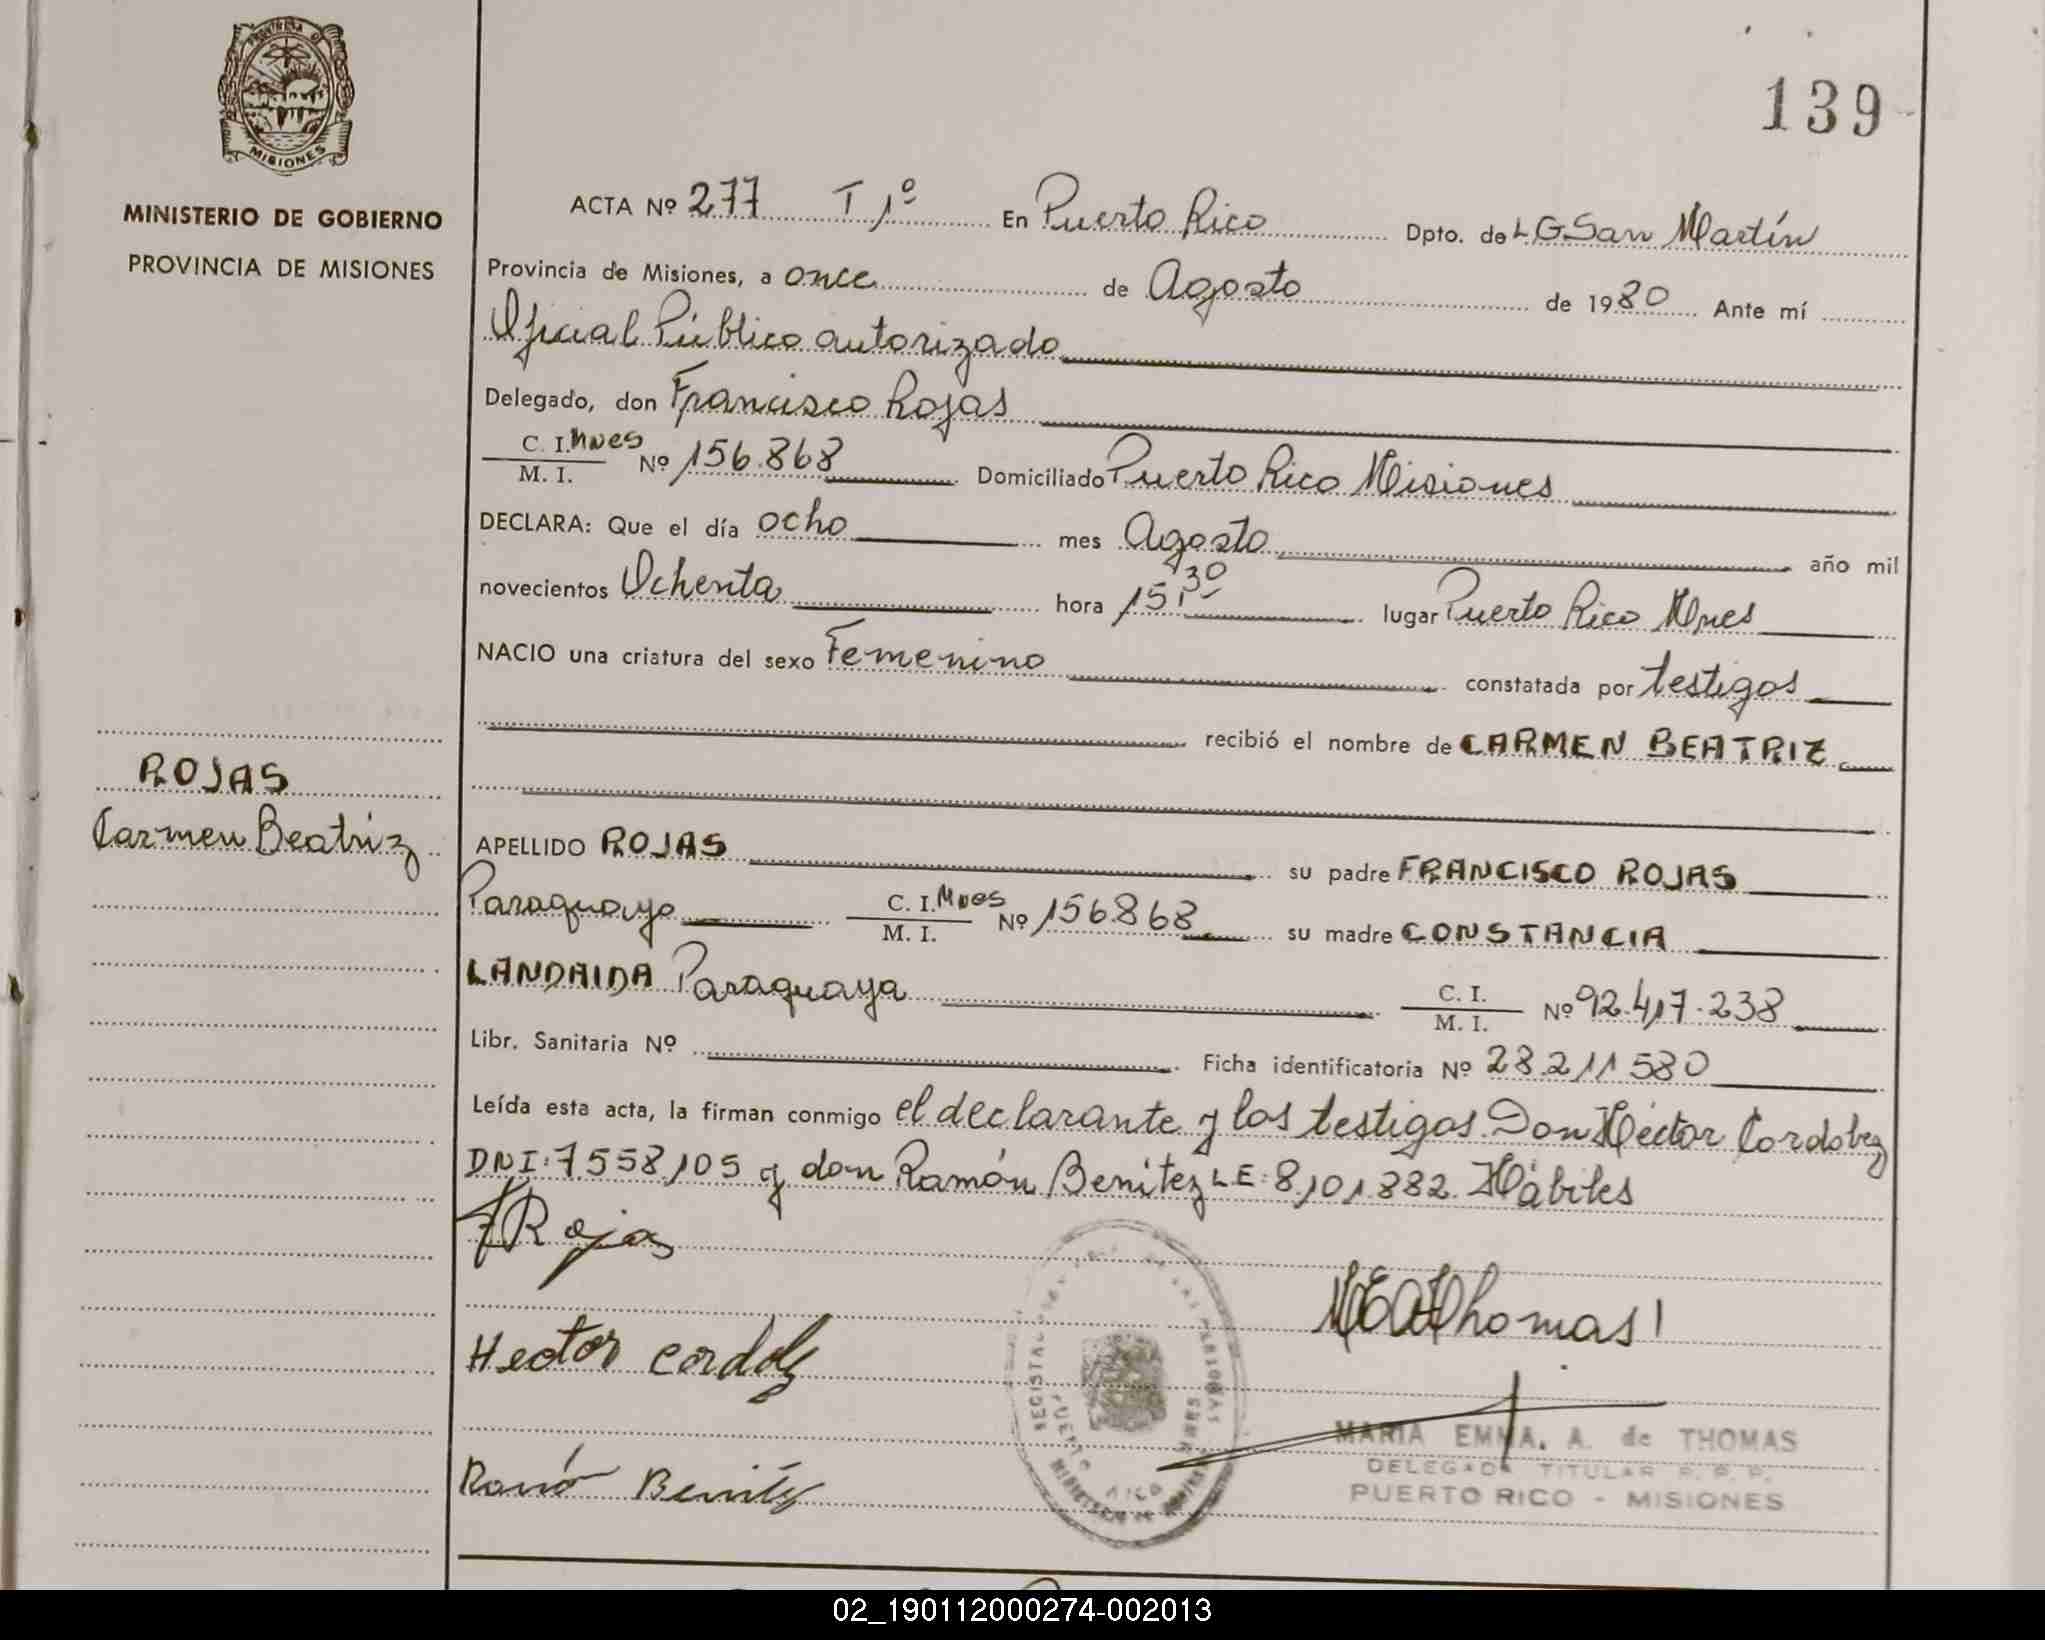 PROVINCIA DE
MISIONES
MINISTERIO DE GOBIERNO
PROVINCIA DE MISIONES
139
ACTA Nº 277 T 1º En Puerto Rico Dpto. de L.G.San Martín
Provincia de Misiones, a once de Agosto de 1980 Ante mí
Oficial Público autorizado
Delegado, don Francisco Rojas
C. I. Mnes
M. I. Nº 156.868 Domiciliado Puerto Rico Misiones
DECLARA: Que el día ocho mes Agosto año mil
novecientos Ochenta hora 15,30 lugar Puerto Rico Mnes
NACIO una criatura del sexo Femenino constatada por testigos
recibió el nombre de CARMEN BEATRIZ
ROJAS
Carmen Beatriz
APELLIDO ROJAS su padre FRANCISCO ROJAS
Paraguayo C. I. Mnes
M. I. Nº 156868 su madre CONSTANCIA
LANDAIDA Paraguaya C. I.
M. I. Nº 92.417.238
Libr. Sanitaria Nº Ficha identificatoria Nº 28.211 580
Leída esta acta, la firman conmigo el declarante y los testigos Don Héctor Cordobez
DNI: 7.558,105 y don Ramón Benitez LE: 8,101.882. Hábiles
F Rojas
MEAThomas
Hector Cordobez
MARIA EMMA. A. de THOMAS
DELEGADA TITULAR R. P. P.
PUERTO RICO - MISIONES
Ramó Benitez
02_190112000274-002013